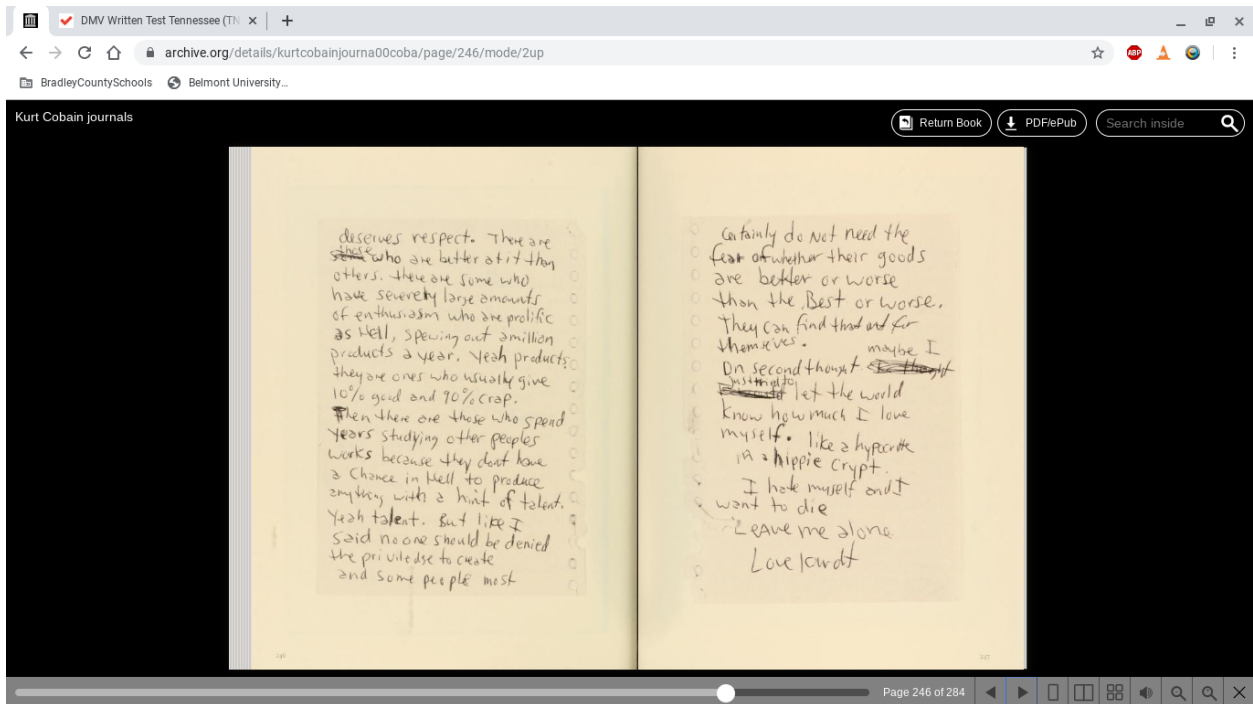 DMV Written Test Tennessee (TN
archive.org/details/kurtcobainjourna00coba/page/246/mode/2up
ABP
BradleyCountySchools
Belmont University...
Kurt Cobain journals
Return Book
PDF/ePub
Search inside
deserves respect. There are
those
some who are better at it than
others. there are some who
have severely large amounts
of enthusiasm who are prolific
as Hell, spewing out a million
products a year. Yeah products
they are ones who usually give
10% good and 90% crap.
Then there are those who spend
years studying other peoples
works because they dont have
a Chance in Hell to produce
anything with a hint of talent.
Yeah talent. But like I
said no one should be denied
the priviledge to create
and some people most
246
Certainly do Not need the
fear of whether their goods
are better or worse
than the Best or worse.
They can find that out for
themselves.
maybe I
On second thought I thought
just tried to
let the world
Know how much I love
myself. like a hypocrite
in a hippie Crypt.
I hate myself and I
want to die
Leave me alone
Love Kurdt
247
Page 246 of 284